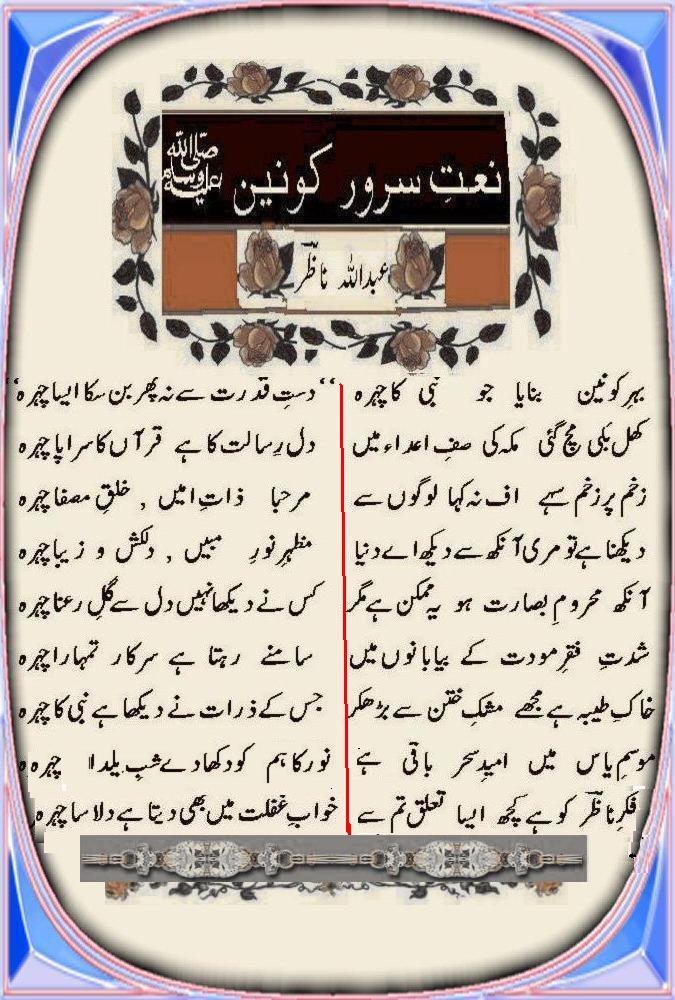 نعتِ سرور کونین ﷺ
عبداللہ ناظرؔ
بہرِ کونین بنایا جو نبی کا چہرہ ‘‘دستِ قدرت سے نہ پھر بن سکا ایسا چہرہ‘‘
کھل بلی مچ گئی مکہ کی صفِ اعداء میں دل رسالت کا ہے قرآں کا سراپا چہرہ
زخم پر زخم سہے اف نہ کہا لوگوں سے مرحبا ذاتِ امیں , خلقِ مصفا چہرہ
دیکھنا ہے تو مری آنکھ سے دیکھ اے دنیا مظہرِ نورِ مبیں , دلکش و زیبا چہرہ
آنکھ محرومِ بصارت ہو یہ ممکن ہے مگر کس نے دیکھا نہیں دل سے گلِ رعنا چہرہ
شدتِ فقرِ مودت کے بیابانوں میں سامنے رہتا ہے سرکار تمہارا چہرہ
خاکِ طیبہ ہے مجھے مشکِ ختن سے بڑھکر جس کے ذرات نے دیکھا ہے نبی کا چہرہ
موسمِ یاس میں امیدِ سحر باقی ہے نور کا ہم کو دکھا دے شبِ یلدا چہرہ
فکرِ ناظرؔ کو ہے کچھ ایسا تعلق تم سے خوابِ غفلت میں بھی دیتا ہے دلاسا چہرہ